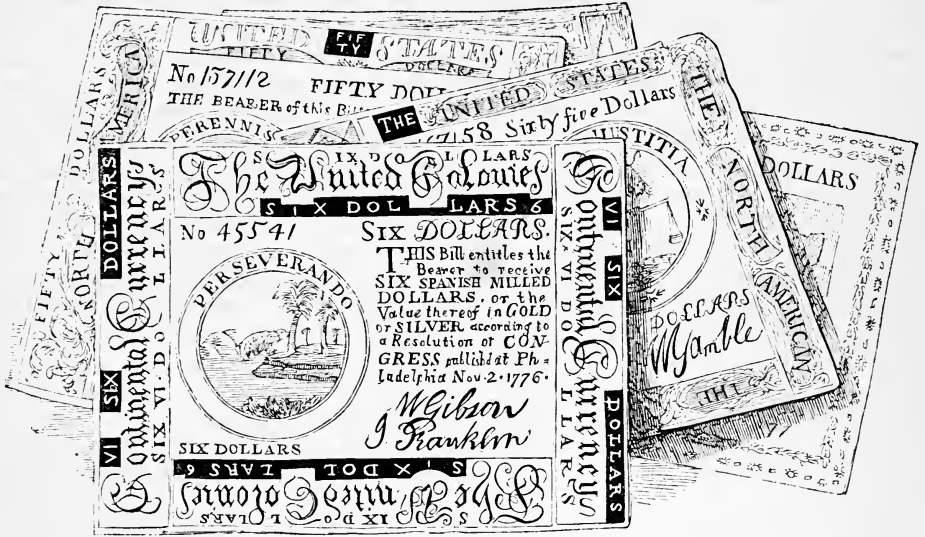 UNITED FIF TY STATES
FIFTY DOLLARS
No 137112 FIFTY
THE BEARER of this
PERENNIS
FIFTY DOLLARS
NORTH AMERICA
THE UNITED STATES
58 Sixty five Dollars
JUSTITIA
THE NORTH AMERICAN
DOLLARS
WGamble
THE
DOLLARS
SIX DOLLARS
The United Colonies
SIX DOLLARS 6
No 45541 SIX DOLLARS.
THIS Bill entitles the
Bearer to receive
SIX SPANISH MILLED
DOLLARS, or the
Value thereof in GOLD
or SILVER according to
a Resolution of CON-
GRESS publishd at Ph=
ladelphia Nov. 2. 1776.
PERSEVERANDO
WGibson
J Franklin
SIX DOLLARS
VI SIX DOLLARS
Continental Currency
SIX VI DOLLARS
Continental Currency
SIX VI DOLLARS
VI SIX DOLLARS
SIX DOLLARS 6
The United Colonies
SIX DOLLARS